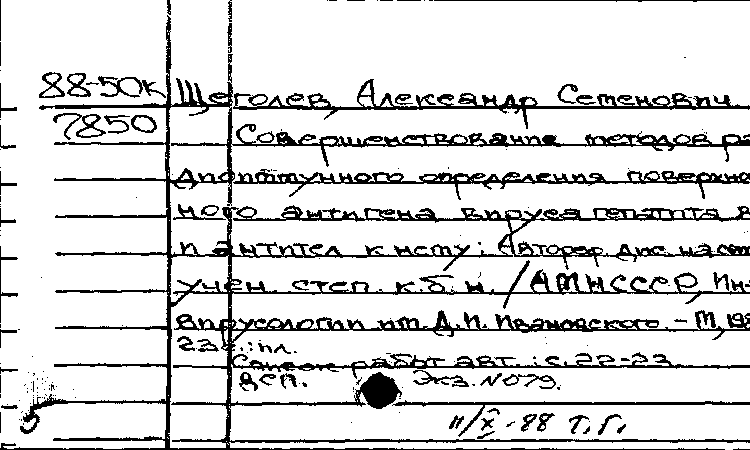 88-50к Щеголев, Александр Семенович
7850 Совершенствование методов ра
диоиммунного определения поверхно
ного антигена вируса гепатита В
и антител к нему: Автореф. дис. на сои
учен. степ. к.б.н. / АМН СССР, Ин-
вирусологии им. Д.И. Ивановского. - М, 198
23с.: ил.
Список работ авт.: с. 22-23
Дсп. Экз. N 079.
11/X-88 Т.Г.
5